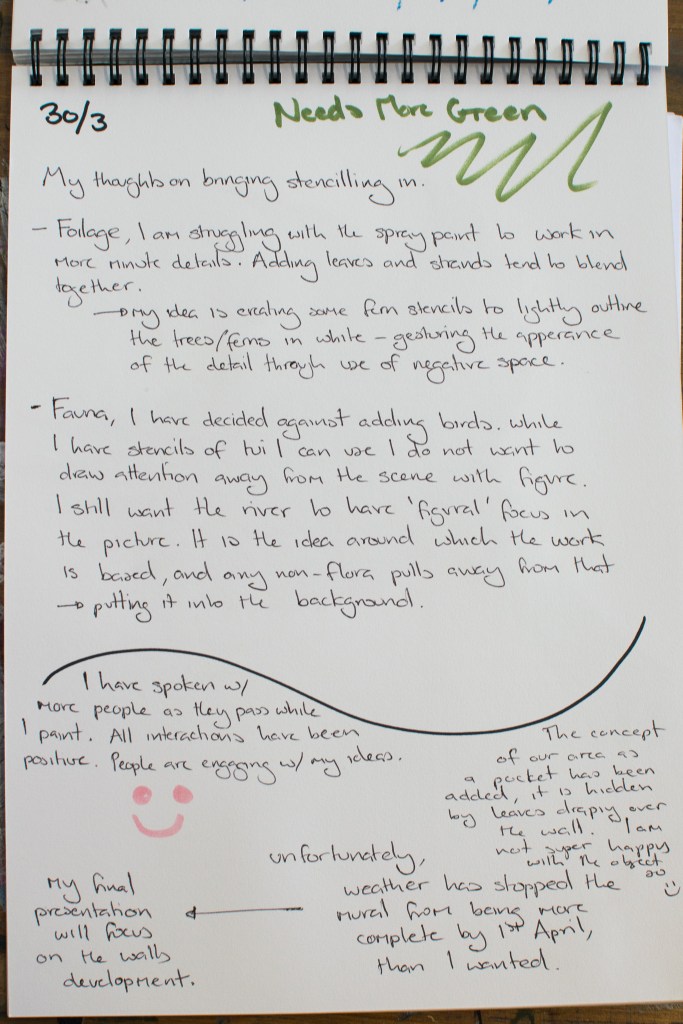 30/3
Needs More Green
My thoughts on bringing stencilling in.
- Foilage, I am struggling with the spray paint to work in
more minute details. Adding leaves and strands tend to blend
together.
→ my idea is creating some fern stencils to lightly outline
the trees/ferns in white - gesturing the apperance
of the detail through use of negative space.
- Fauna, I have decided against adding birds. While
I have stencils of tui I can use I do not want to
draw attention away from the scene with figure.
I still want the river to have 'figural' focus in
the picture. It is the idea around which the work
is based, and any non-flora pulls away from that
→ putting it into the background.
I have spoken w/
more people as they pass while
I paint. All interactions have been
positive. People are engaging w/ my ideas.
The concept
of our area as
a pocket has been
added, it is hidden
by leaves drapiy over
the wall. I am
not super happy
with the object
unfortunately,
weather has stopped the
mural from being more
complete by 1st April,
than I wanted.
My final
presentation
will focus
on the walls
development.